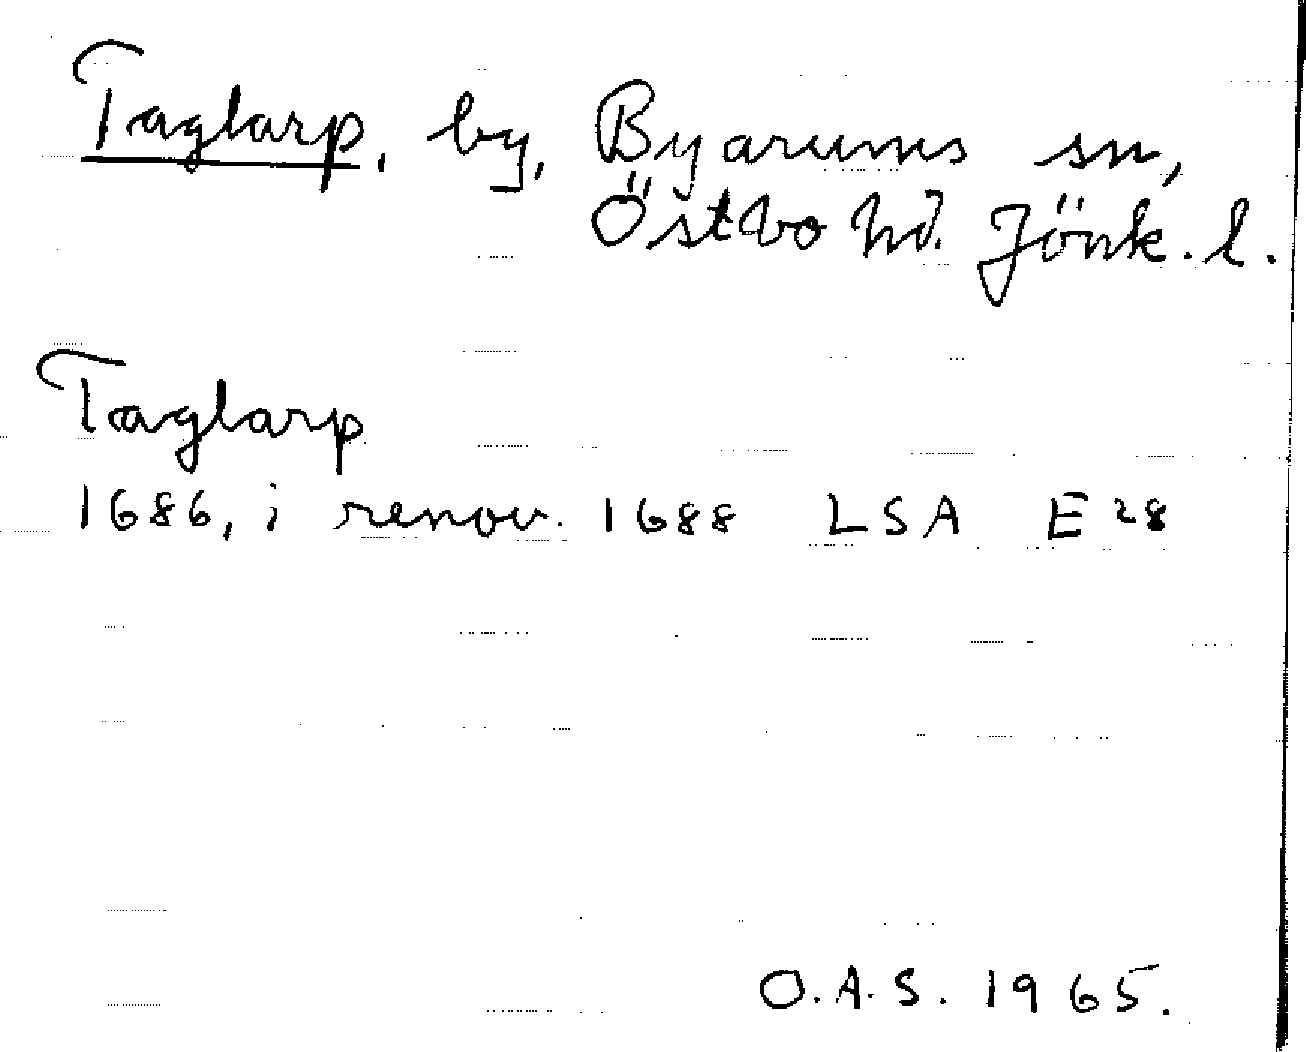 Taglarp, by, Byarums sn,
Östbo hd. Jönk. l.
Taglarp
1686, i renov. 1688 LSA E 28
O.A.S. 1965.